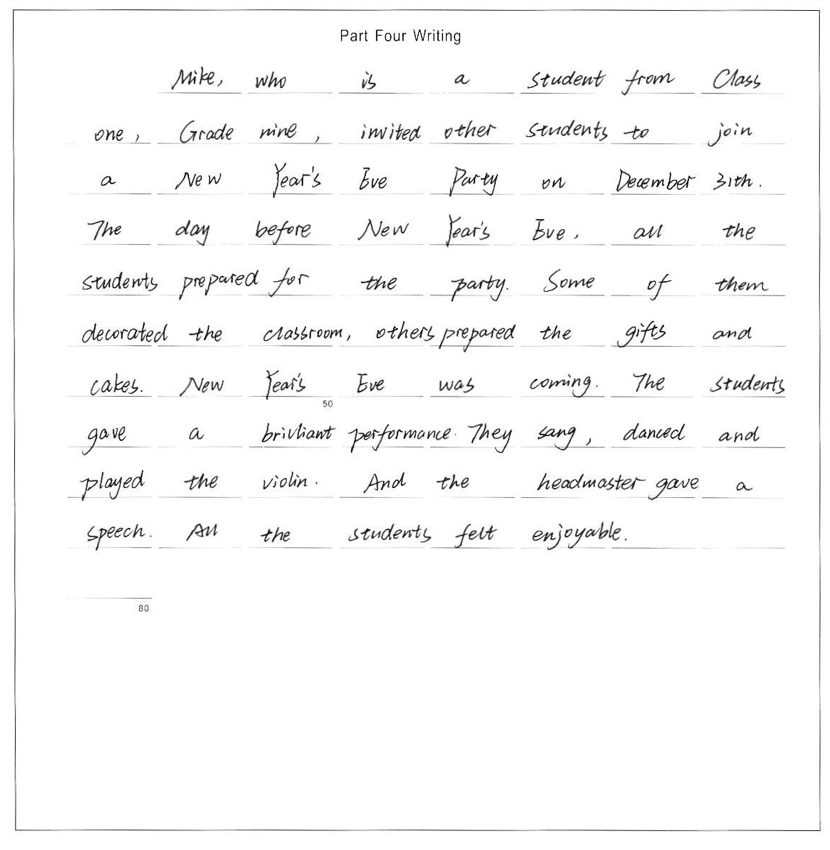 Part Four Writing
Mike, who is a student from Class
one, Grade nine, invited other students to join
a New Year's Eve Party on December 31th.
The day before New Year's Eve, all the
students prepared for the party. Some of them
decorated the classroom, others prepared the gifts and
cakes. New Year's Eve was coming. The students
50
gave a brivliant performance. They sang, danced and
played the violin. And the headmaster gave a
speech. All the students felt enjoyable.
80